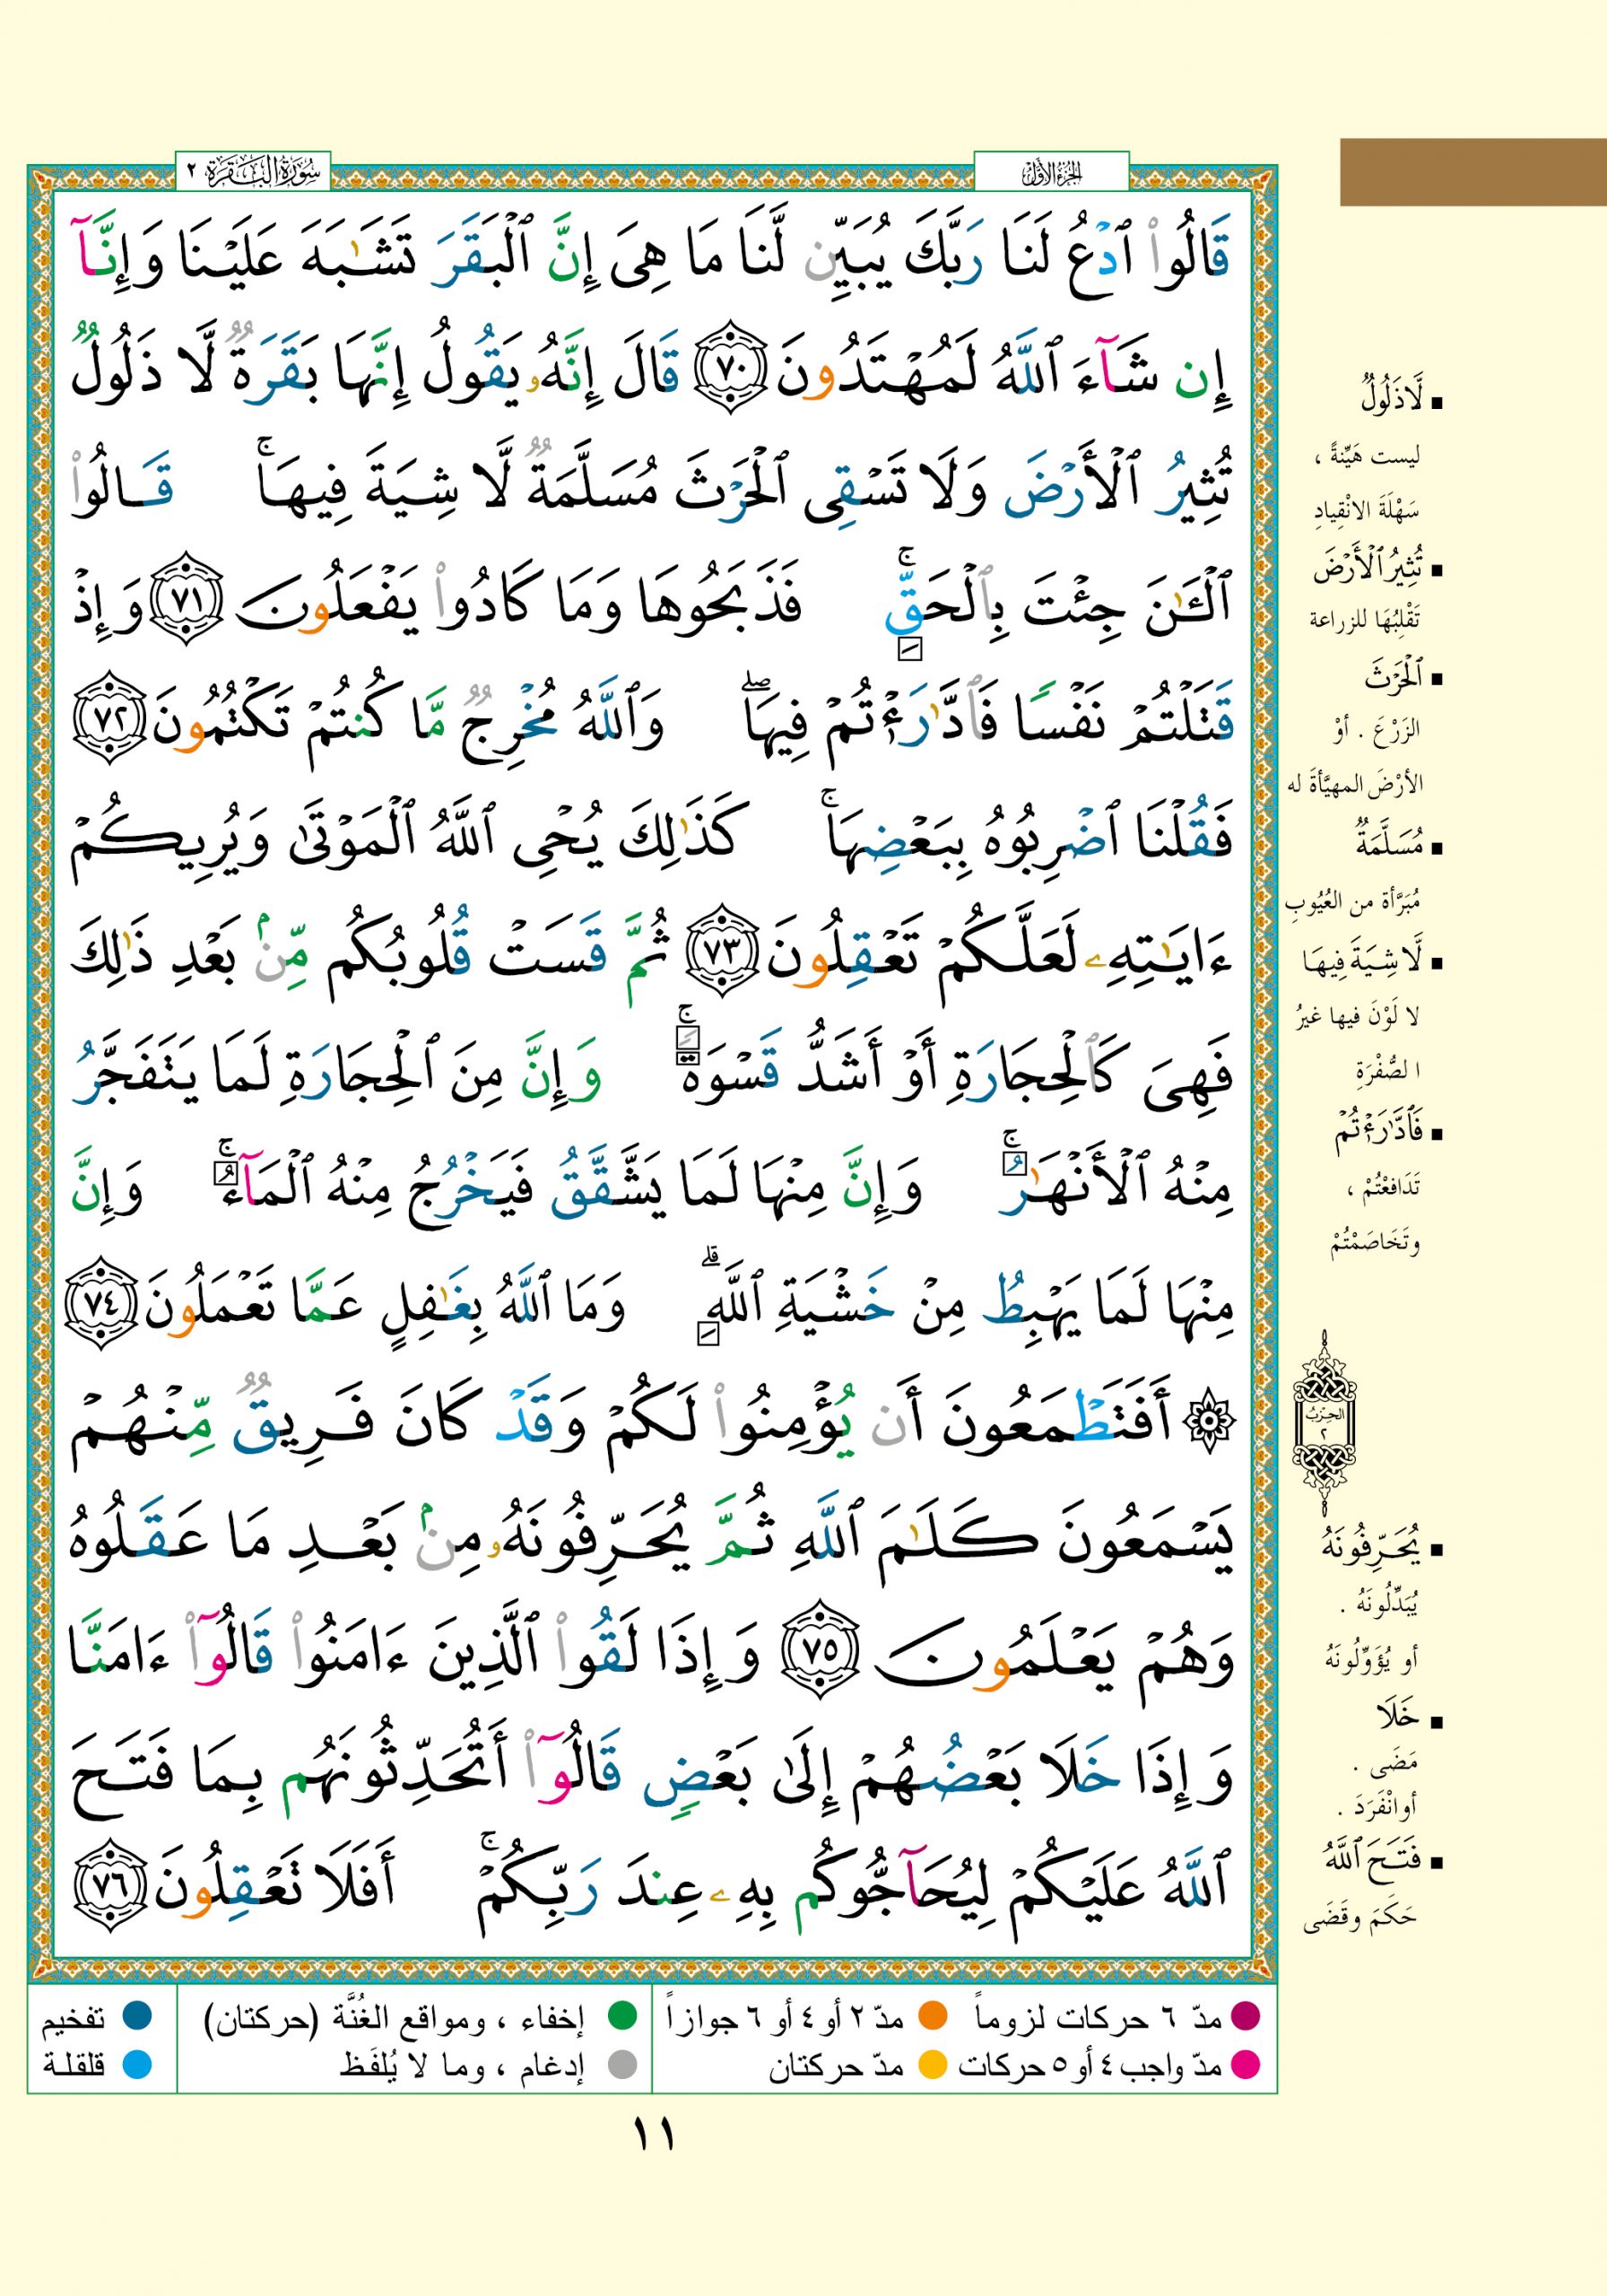 الجزء الأول
سورة البقرة ٢
قَالُوا۟ ٱدْعُ لَنَا رَبَّكَ يُبَيِّن لَّنَا مَا هِىَ إِنَّ ٱلْبَقَرَ تَشَـٰبَهَ عَلَيْنَا وَإِنَّآ
إِن شَآءَ ٱللَّهُ لَمُهْتَدُونَ ٧٠ قَالَ إِنَّهُۥ يَقُولُ إِنَّهَا بَقَرَةٌ لَّا ذَلُولٌ
تُثِيرُ ٱلْأَرْضَ وَلَا تَسْقِى ٱلْحَرْثَ مُسَلَّمَةٌ لَّا شِيَةَ فِيهَا ۚ قَالُوا۟
ٱلْـَٔـٰنَ جِئْتَ بِٱلْحَقِّ ۚ فَذَبَحُوهَا وَمَا كَادُوا۟ يَفْعَلُونَ ٧١ وَإِذْ
قَتَلْتُمْ نَفْسًا فَٱدَّٰرَْٰٔتُمْ فِيهَا ۖ وَٱللَّهُ مُخْرِجٌ مَّا كُنتُمْ تَكْتُمُونَ ٧٢
فَقُلْنَا ٱضْرِبُوهُ بِبَعْضِهَا ۚ كَذَٰلِكَ يُحْىِ ٱللَّهُ ٱلْمَوْتَىٰ وَيُرِيكُمْ
ءَايَـٰتِهِۦ لَعَلَّكُمْ تَعْقِلُونَ ٧٣ ثُمَّ قَسَتْ قُلُوبُكُم مِّنۢ بَعْدِ ذَٰلِكَ
فَهِىَ كَٱلْحِجَارَةِ أَوْ أَشَدُّ قَسْوَةً ۚ وَإِنَّ مِنَ ٱلْحِجَارَةِ لَمَا يَتَفَجَّرُ
مِنْهُ ٱلْأَنْهَـٰرُ ۚ وَإِنَّ مِنْهَا لَمَا يَشَّقَّقُ فَيَخْرُجُ مِنْهُ ٱلْمَآءُ ۚ وَإِنَّ
مِنْهَا لَمَا يَهْبِطُ مِنْ خَشْيَةِ ٱللَّهِ ۗ وَمَا ٱللَّهُ بِغَـٰفِلٍ عَمَّا تَعْمَلُونَ ٧٤
۞ أَفَتَطْمَعُونَ أَن يُؤْمِنُوا۟ لَكُمْ وَقَدْ كَانَ فَرِيقٌ مِّنْهُمْ
يَسْمَعُونَ كَلَـٰمَ ٱللَّهِ ثُمَّ يُحَرِّفُونَهُۥ مِنۢ بَعْدِ مَا عَقَلُوهُ
وَهُمْ يَعْلَمُونَ ٧٥ وَإِذَا لَقُوا۟ ٱلَّذِينَ ءَامَنُوا۟ قَالُوٓا۟ ءَامَنَّا
وَإِذَا خَلَا بَعْضُهُمْ إِلَىٰ بَعْضٍ قَالُوٓا۟ أَتُحَدِّثُونَهُم بِمَا فَتَحَ
ٱللَّهُ عَلَيْكُمْ لِيُحَآجُّوكُم بِهِۦ عِندَ رَبِّكُمْ ۚ أَفَلَا تَعْقِلُونَ ٧٦
لَّا ذَلُولٌ
ليست هَيِّنةً ،
سَهْلَةَ الانْقِيادِ
تُثِيرُ ٱلْأَرْضَ
تَقْلِبُهَا للزراعة
ٱلْحَرْثَ
الزَرْعَ . أوْ
الأرْضَ المهيَّأةَ له
مُسَلَّمَةٌ
مُبَرَّأة من العُيُوبِ
لَّا شِيَةَ فِيهَا
لا لَوْنَ فيها غيرُ
الصُّفْرَةِ
فَٱدَّٰرَْٰٔتُمْ
تَدَافعْتُمْ ،
وتَخَاصَمْتُمْ
الحزب
٢
يُحَرِّفُونَهُ
يُبَدِّلُونَهُ .
أو يُؤَوِّلُونَهُ
خَلَا
مَضَى .
أو انْفَرَدَ .
فَتَحَ ٱللَّهُ
حَكَمَ وقَضَى
مدّ ٦ حركات لزوماً مدّ ٢ أو ٤ أو ٦ جوازاً إخفاء ، ومواقع الغُنَّة (حركتان) تفخيم
مدّ واجب ٤ أو ٥ حركات مدّ حركتان إدغام ، وما لا يُلفَظ قلقلة
١١